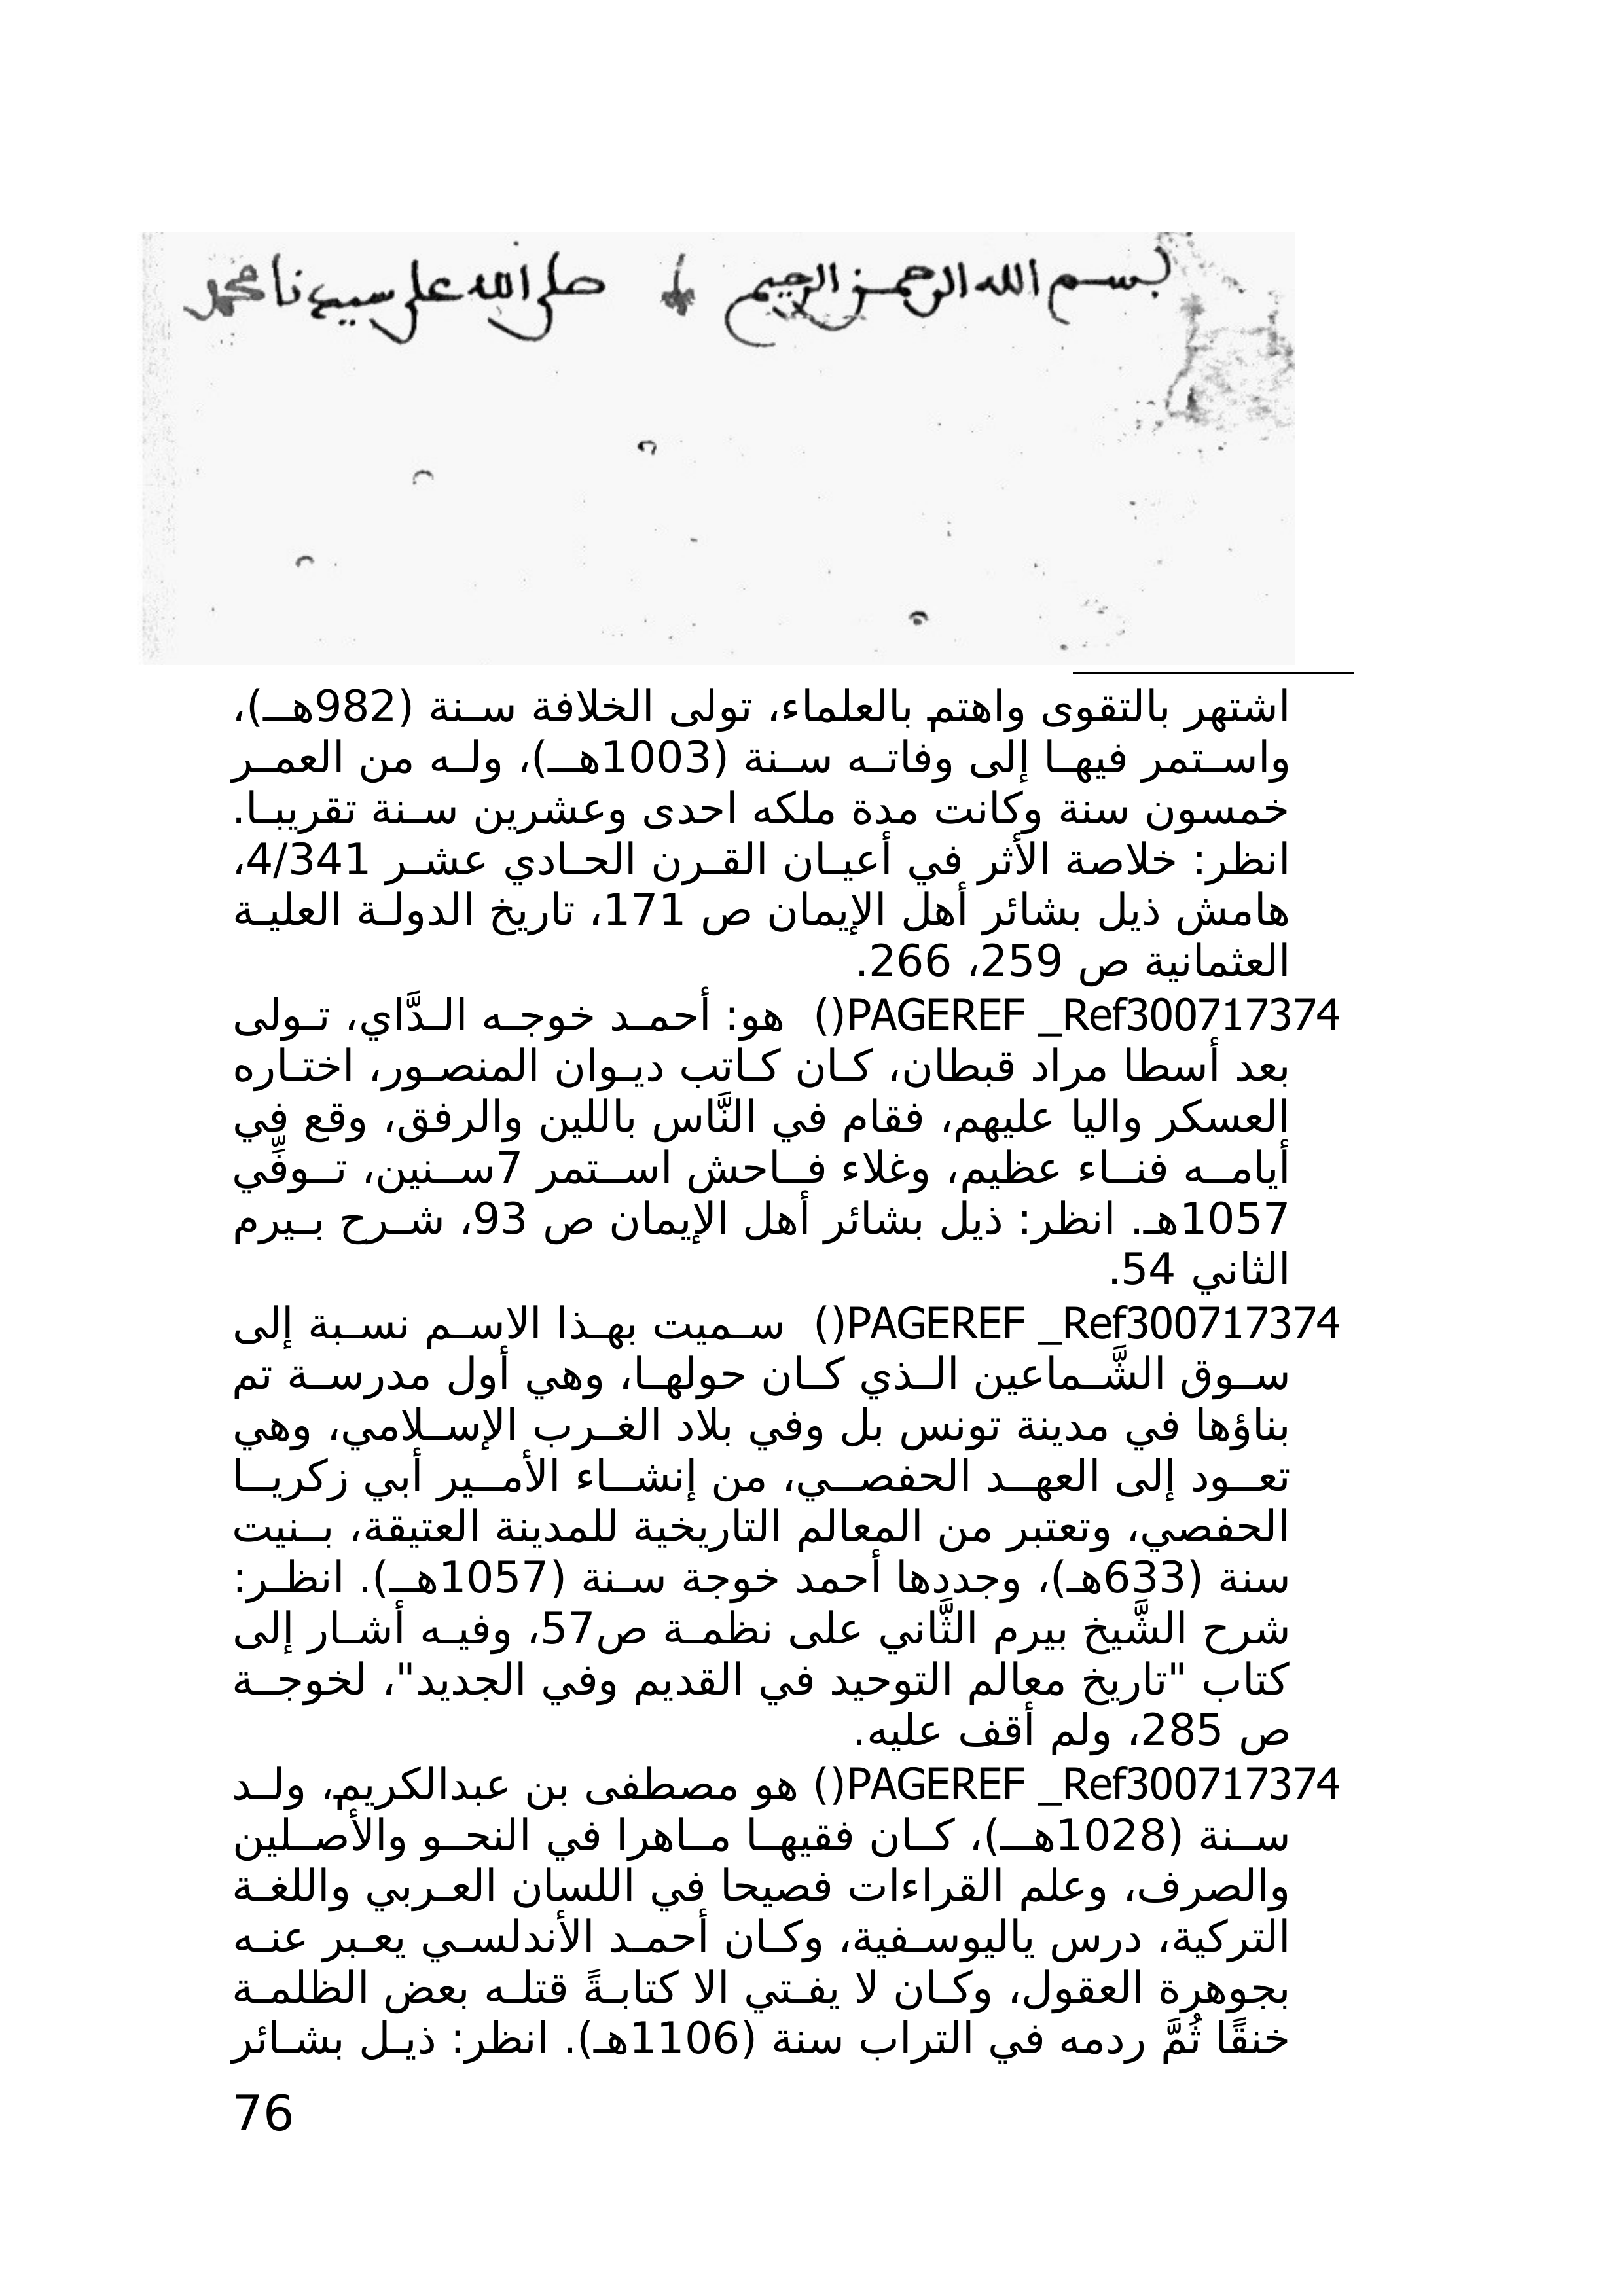 بسم الله الرحمن الرحيم صلى الله على سيدنا محمد
اشتهر بالتقوى واهتم بالعلماء، تولى الخلافة سنة (982هـ)،
واستمر فيها إلى وفاته سنة (1003هـ)، وله من العمر
خمسون سنة وكانت مدة ملكه احدى وعشرين سنة تقريبا.
انظر: خلاصة الأثر في أعيان القرن الحادي عشر 4/341،
هامش ذيل بشائر أهل الإيمان ص 171، تاريخ الدولة العلية
العثمانية ص 259، 266.
PAGEREF _Ref300717374() هو: أحمد خوجه الدَّاي، تولى
بعد أسطا مراد قبطان، كان كاتب ديوان المنصور، اختاره
العسكر واليا عليهم، فقام في النَّاس باللين والرفق، وقع في
أيامه فناء عظيم، وغلاء فاحش استمر 7سنين، توفِّي
1057هـ. انظر: ذيل بشائر أهل الإيمان ص 93، شرح بيرم
الثاني 54.
PAGEREF _Ref300717374() سميت بهذا الاسم نسبة إلى
سوق الشَّماعين الذي كان حولها، وهي أول مدرسة تم
بناؤها في مدينة تونس بل وفي بلاد الغرب الإسلامي، وهي
تعود إلى العهد الحفصي، من إنشاء الأمير أبي زكريا
الحفصي، وتعتبر من المعالم التاريخية للمدينة العتيقة، بنيت
سنة (633هـ)، وجددها أحمد خوجة سنة (1057هـ). انظر:
شرح الشَّيخ بيرم الثَّاني على نظمة ص57، وفيه أشار إلى
كتاب "تاريخ معالم التوحيد في القديم وفي الجديد"، لخوجة
ص 285، ولم أقف عليه.
PAGEREF _Ref300717374() هو مصطفى بن عبدالكريم، ولد
سنة (1028هـ)، كان فقيها ماهرا في النحو والأصلين
والصرف، وعلم القراءات فصيحا في اللسان العربي واللغة
التركية، درس ياليوسفية، وكان أحمد الأندلسي يعبر عنه
بجوهرة العقول، وكان لا يفتي الا كتابةً قتله بعض الظلمة
خنقًا ثُمَّ ردمه في التراب سنة (1106هـ). انظر: ذيل بشائر
76